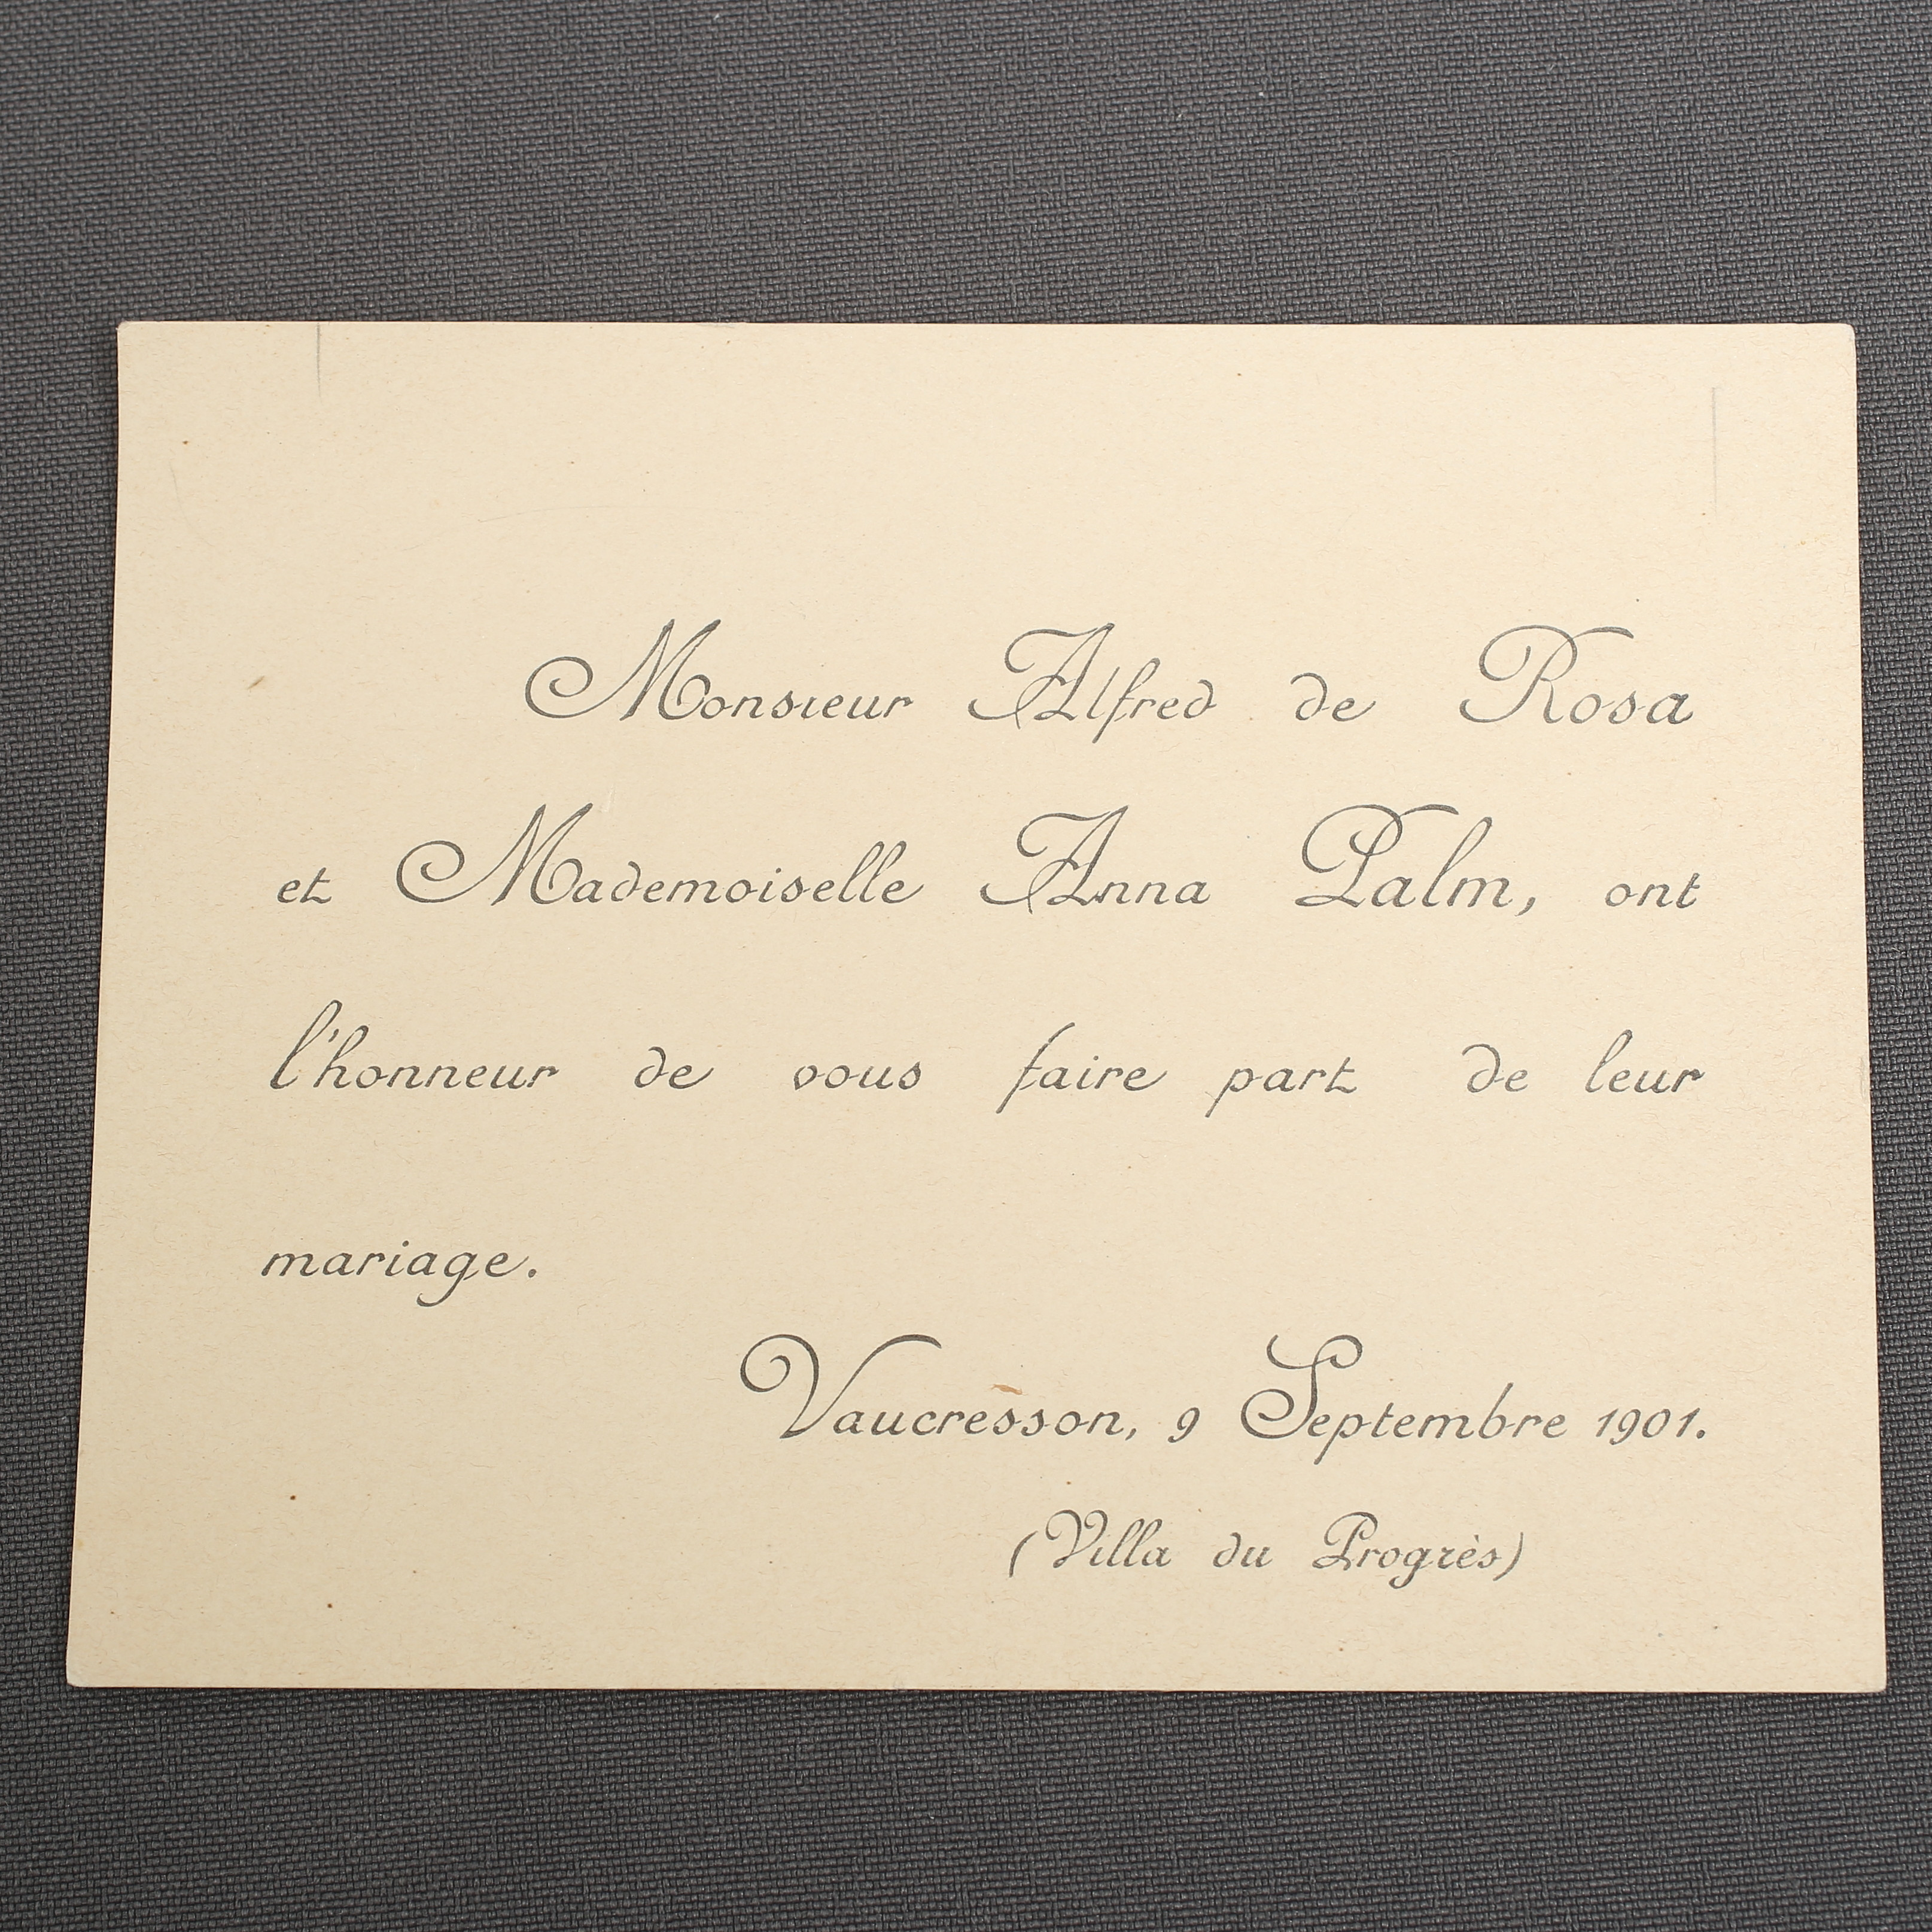 Monsieur Alfred de Rosa
et Mademoiselle Anna Palm, ont
l'honneur de vous faire part de leur
mariage.
Vaucresson, 9 Septembre 1901.
(Villa du Progrès)